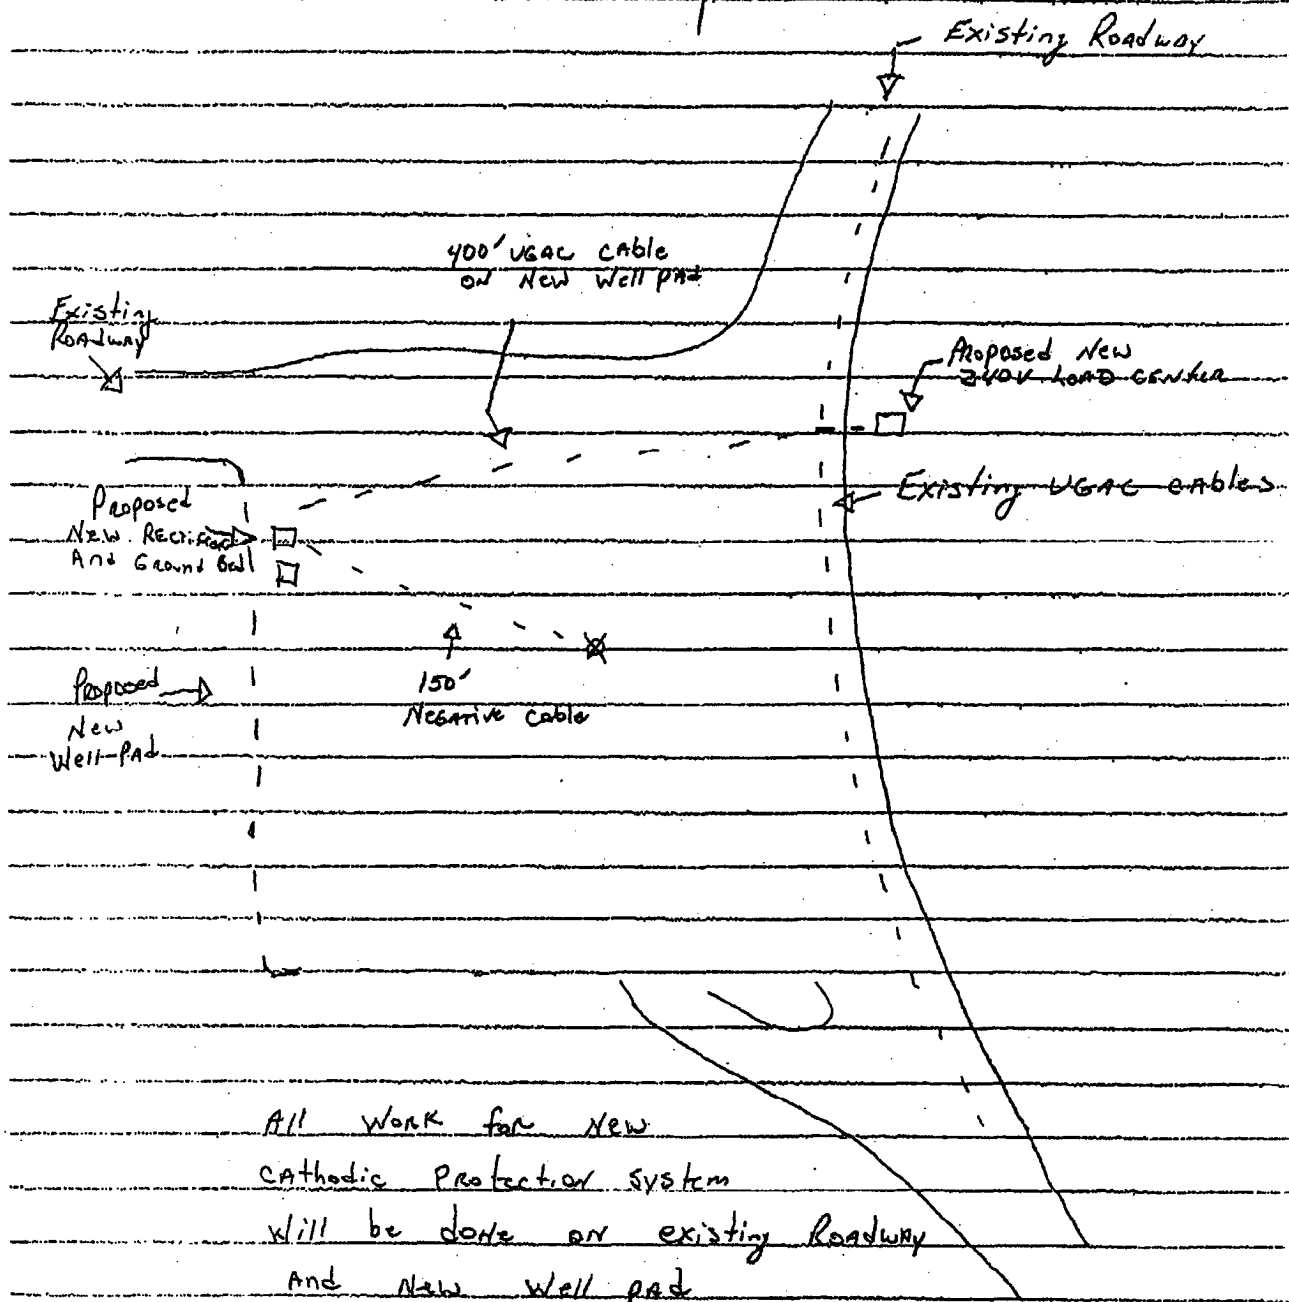 Existing Roadway
400' UGAC CAble
ON New Well PAd
Existing
ROADWAY
Proposed New
240V LOAD CENTER
Existing UGAC CABLES
Proposed
New Rectifier
And Ground Bed
150'
NEGATIVE Cable
Proposed
New
Well PAd
All Work for New
CAthodic Protection System
Will be done on existing Roadway
And New Well PAd